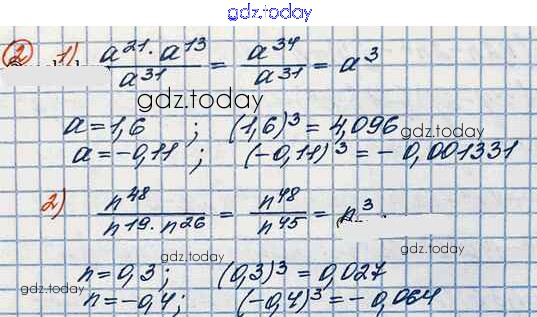 gdz.today
2 1) a²¹·a¹³/a³¹ = a³⁴/a³¹ = a³
gdz.today
a=1,6 ; (1,6)³=4,096 gdz.today
a=-0,11 ; (-0,11)³=-0,001331
2) n⁴⁸/n¹⁹·n²⁶ = n⁴⁸/n⁴⁵ = n³
gdz.today gdz.today
n=0,3; (0,3)³=0,027
gdz.today
n=-0,4; (-0,4)³=-0,064
gdz.today